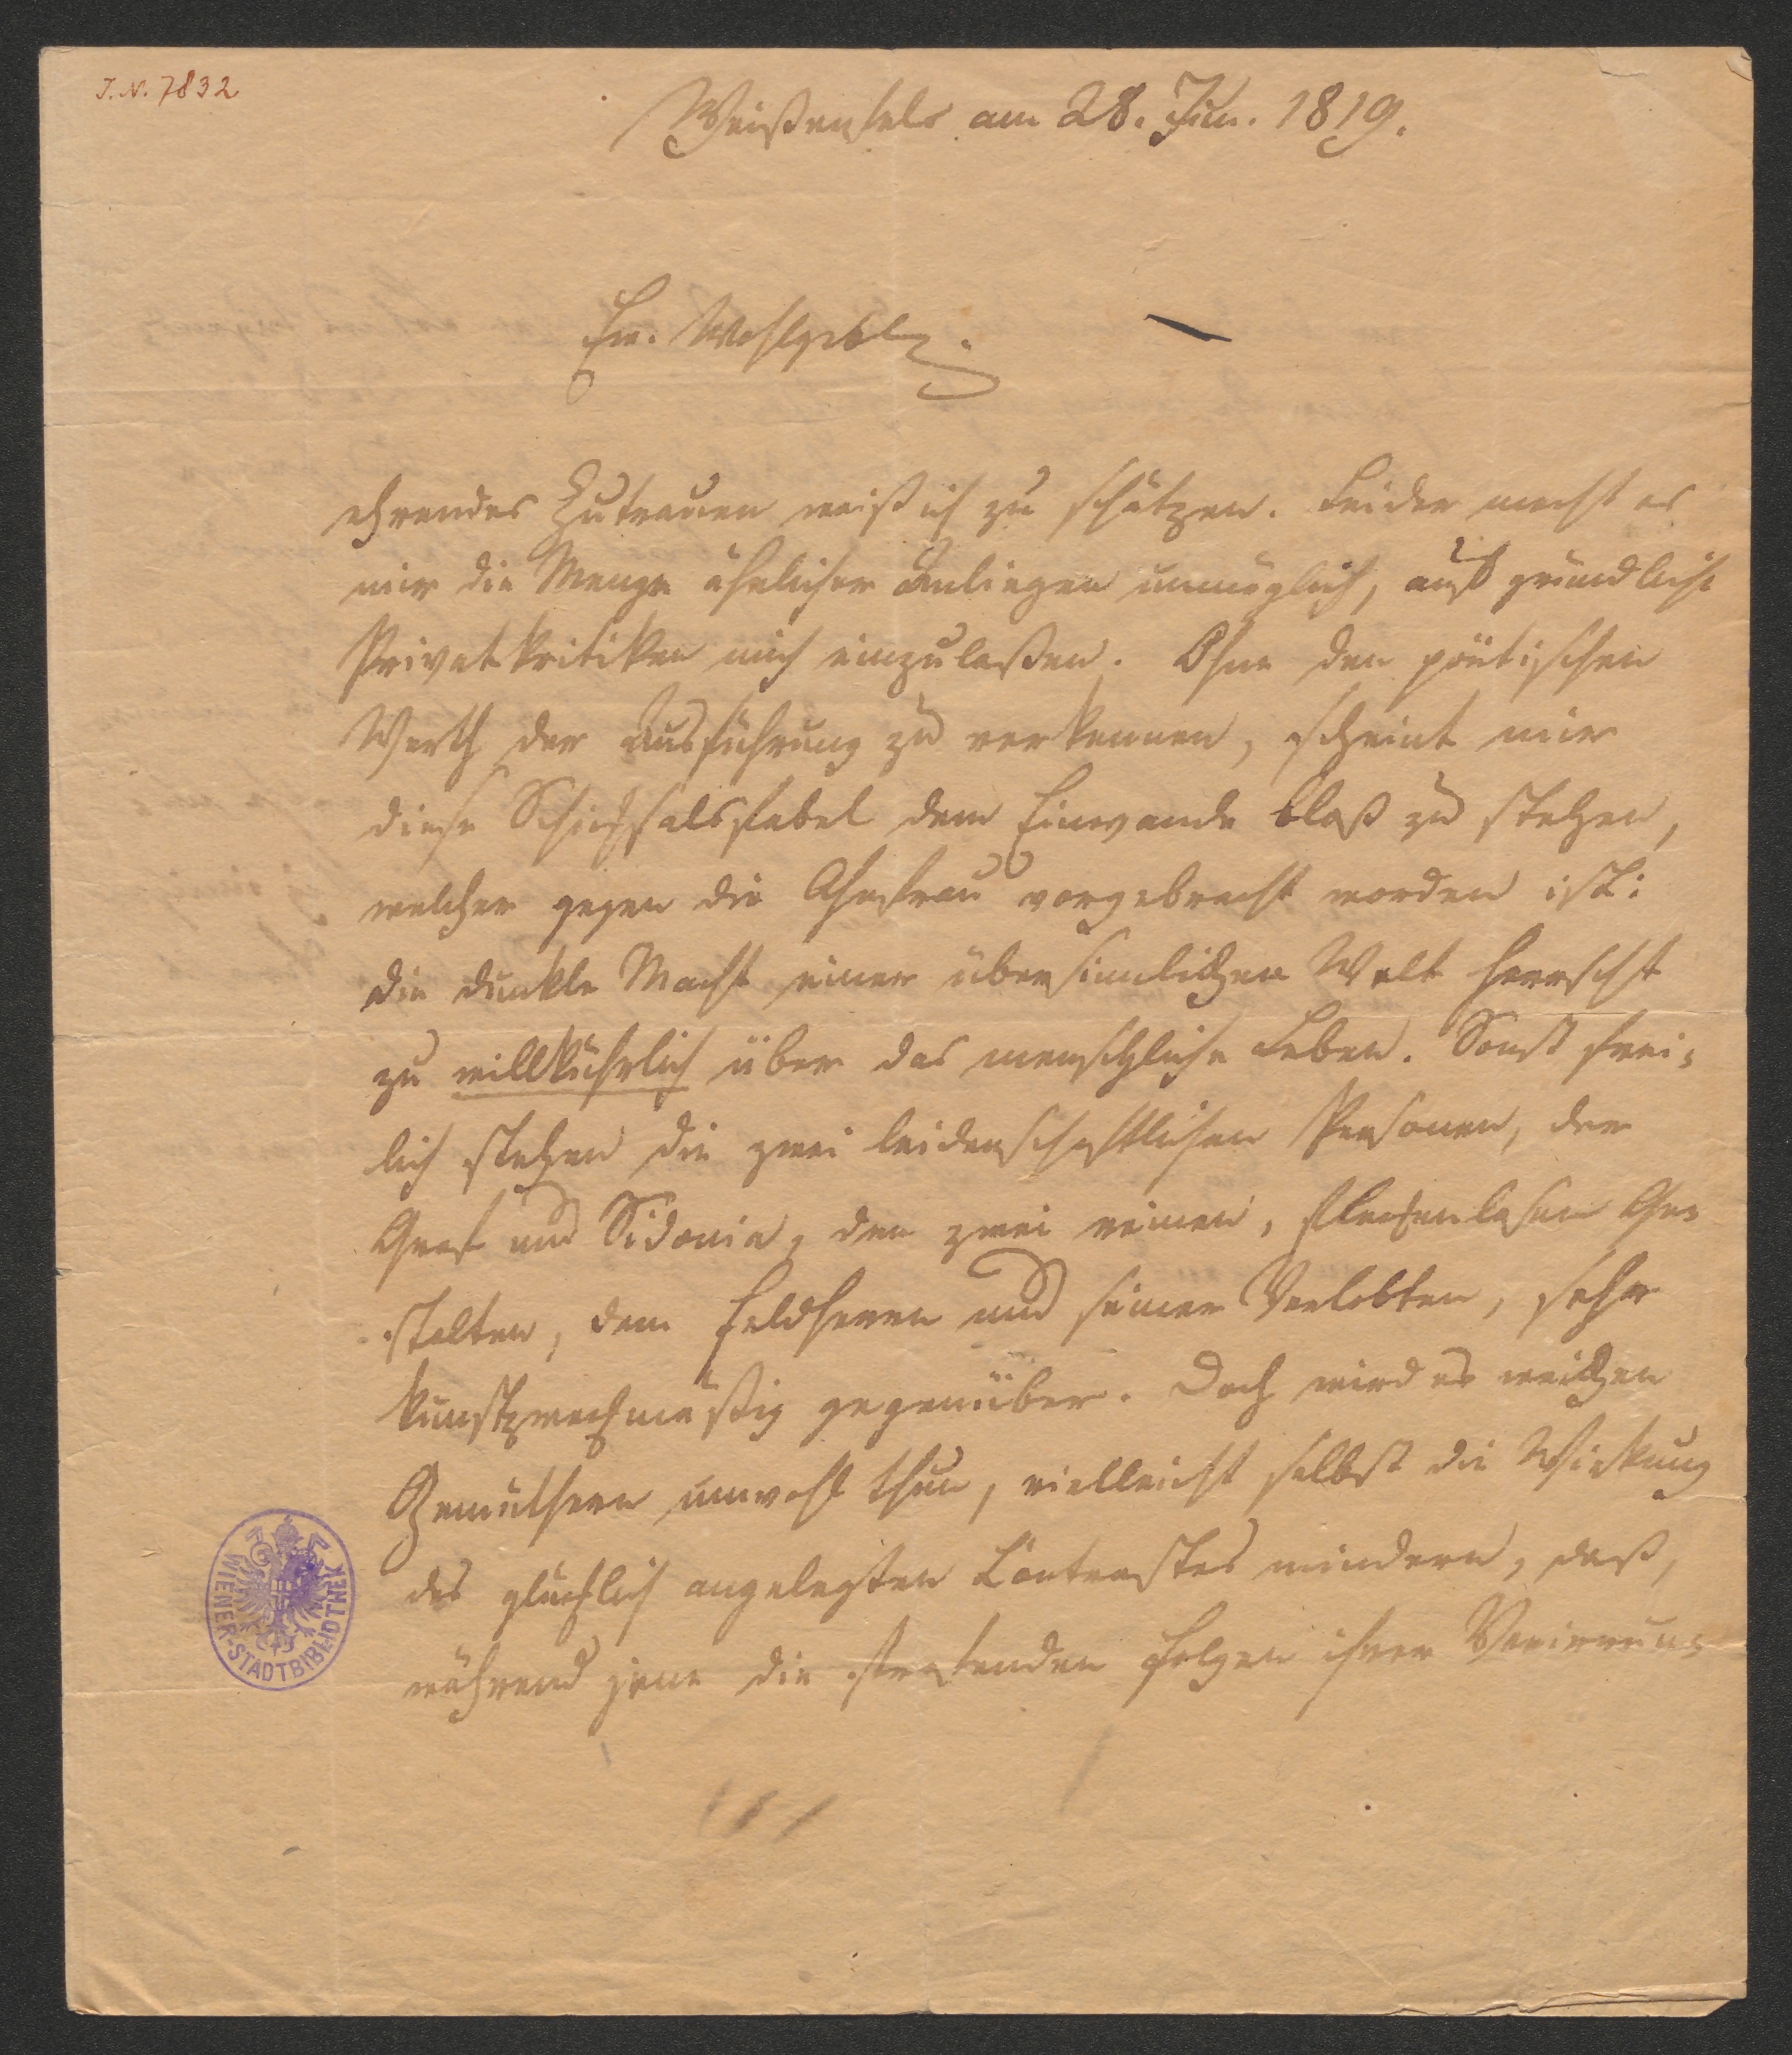 J.N. 7832
Weißenfels am 28. Jun. 1819.
Ew. Wohlgebh.
ehrendes Zutrauen weiß ich zu schätzen. Leider macht es
mir die Menge ähnlicher Anliegen unmöglich, auf gründliche
Privatkritiken mich einzulaßen. Ohne den poëtischen
Werth der Ausführung zu verkennen, scheint mir
diese Schicksalsfabel dem Einwande blos zu stehen,
welcher gegen die Ahnfrau vorgebracht worden ist:
die dunkle Macht einer übersinnlichen Welt herrscht
zu willkührlich über das menschliche Leben. Sonst frei-
lich stehen die zwei leidenschaftlichen Personen, der
Graf und Sidonia, den zwei reinen, fleckenlosen Ge-
stalten, dem Feldherrn und seiner Verlobten, sehr
kunstzweckmäßig gegenüber. Doch wird es weichen
Gemüthern unwohl thun, vielleicht selbst die Wirkung
des glücklich angelegten Contrastes mindern, daß,
während jene die strafenden Folgen ihrer Verirrun-
WIENER-STADTBIBLIOTHEK